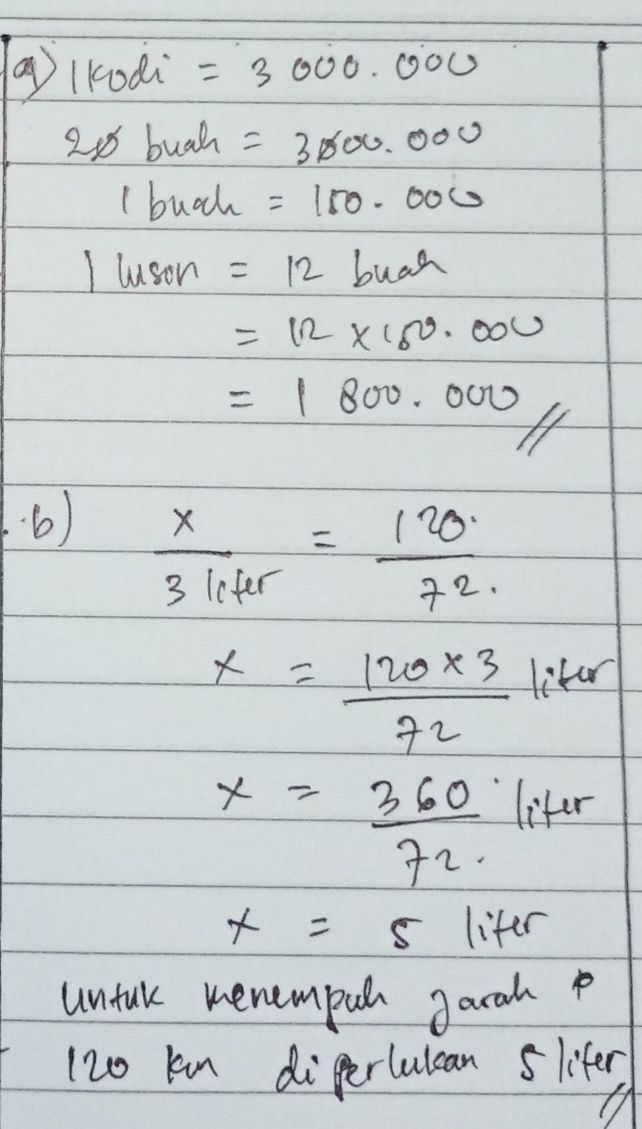 a) 1 Kodi = 3 000.000
20 buah = 3000.000
1 buah = 150.000
1 luson = 12 buah
= 12 x 150.000
= 1 800.000 //
b) x / 3 liter = 120 / 72.
x = 120 x 3 / 72 liter
x = 360 / 72. liter
x = 5 liter
untuk menempuh jarak
120 km diperlukan 5 liter //